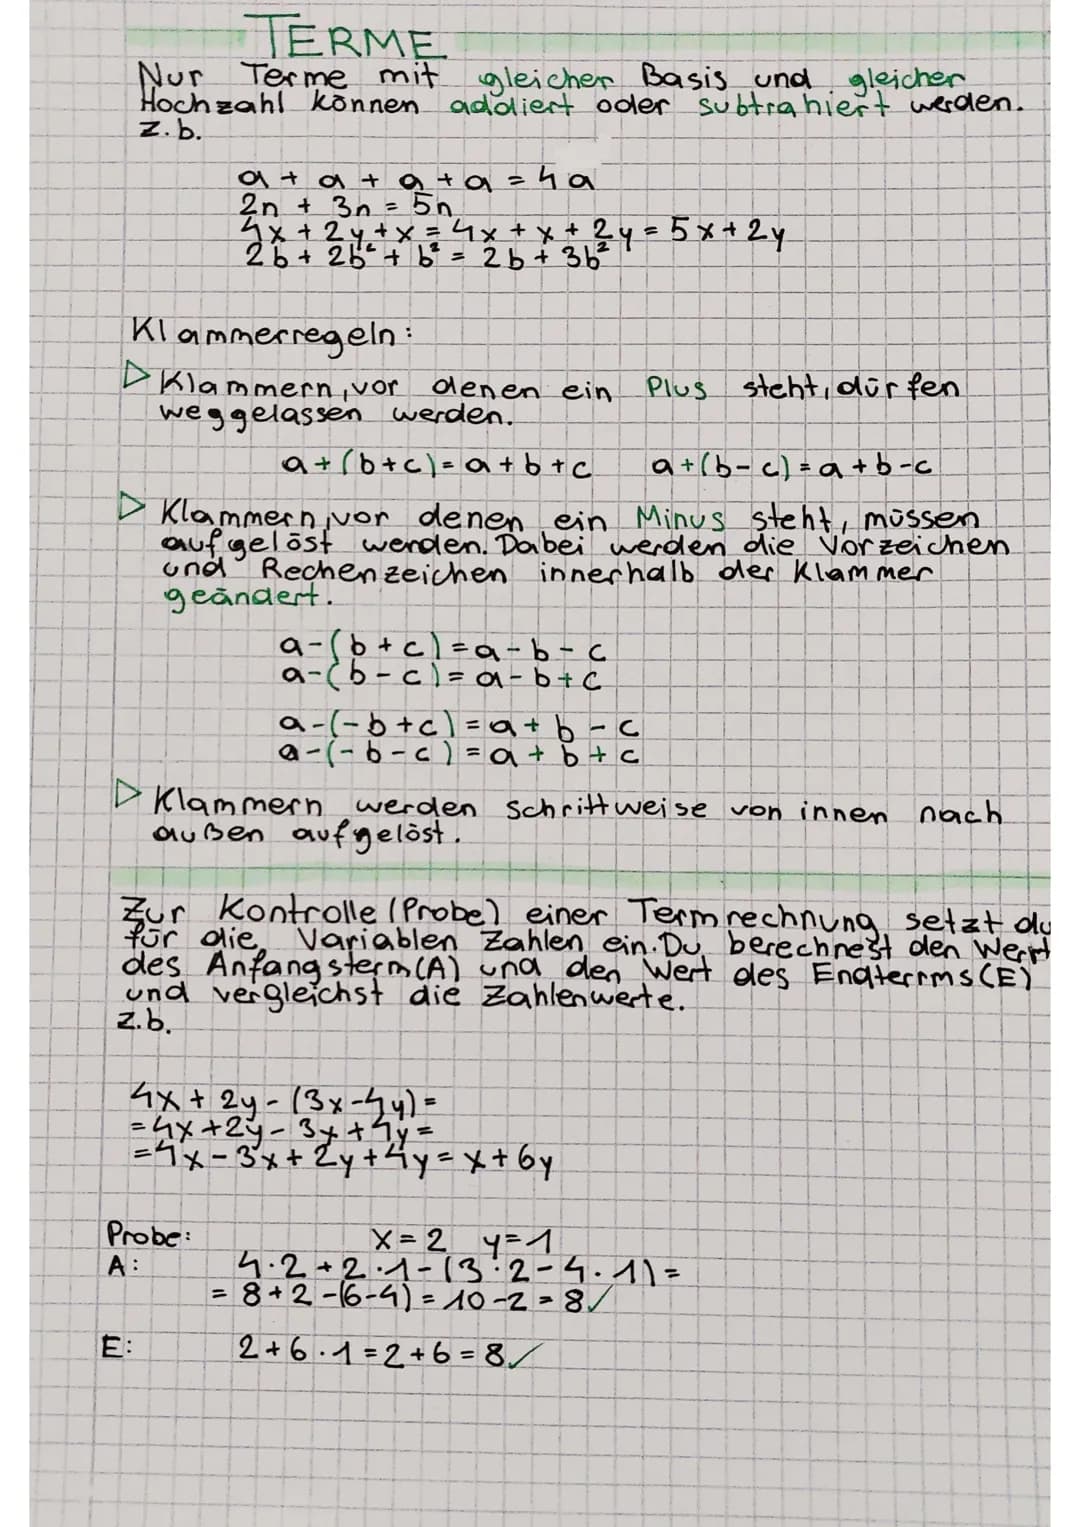 TERME
Nur Terme mit gleicher Basis und gleicher
Hochzahl können addiert oder subtrahiert werden.
z.b.
a + a + a + a = 4a
2n + 3n = 5n
4x + 2y + x = 4x + x + 2y = 5x + 2y
2b + 2b² + b² = 2b + 3b²
Klammerregeln:
▷ Klammern, vor denen ein Plus steht, dürfen
weggelassen werden.
a+(b+c)=a+b+c a+(b-c)=a+b-c
▷ Klammern, vor denen ein Minus steht, müssen
aufgelöst werden. Dabei werden die Vorzeichen
und Rechenzeichen innerhalb der Klammer
geändert.
a-(b+c)=a-b-c
a-(b-c)=a-b+c
a-(-b+c)=a+b-c
a-(-b-c)=a+b+c
▷ Klammern werden schrittweise von innen nach
außen aufgelöst.
Zur Kontrolle (Probe) einer Termrechnung setzt du
für die Variablen Zahlen ein. Du berechnest den Wert
des Anfangsterm(A) und den Wert des Endterrms(E)
und vergleichst die Zahlenwerte.
z.b.
4x + 2y - (3x-4y) =
= 4x + 2y - 3x + 4y =
= 4x - 3x + 2y + 4y = x + 6y
Probe: x = 2 y = 1
A: 4·2 + 2·1 - (3·2 - 4·1) =
= 8 + 2 - (6-4) = 10 - 2 = 8 ✓
E: 2 + 6·1 = 2 + 6 = 8 ✓